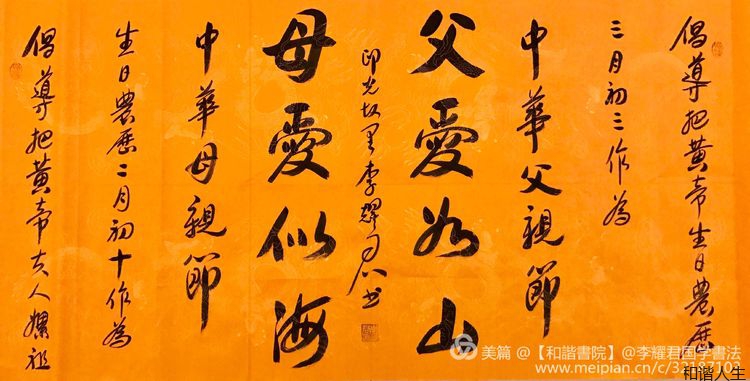 倡導把黃帝生日農歷
三月初三作為
中華父親節
父愛如山
印光故里李耀君书
母愛似海
中華母親節
生日農歷二月初十作為
倡導把黃帝夫人嫘祖
美篇 @【和諧書院】@李耀君国学書法
www.meipian.cn/c/32187101
和谐人生